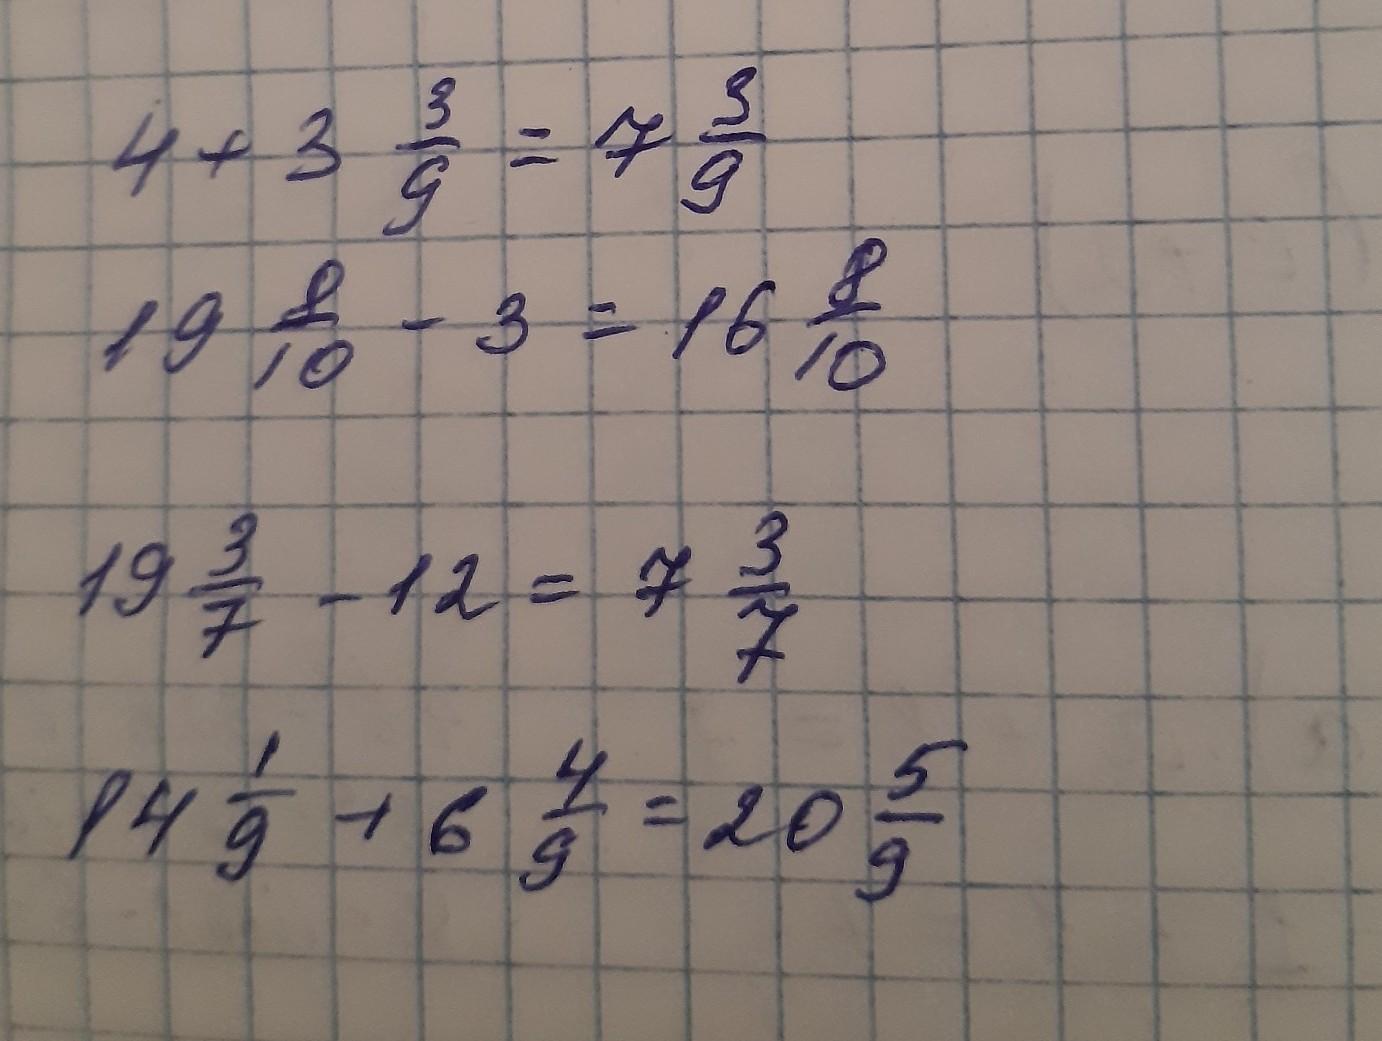 4 + 3 3/9 = 7 3/9
19 8/10 - 3 = 16 8/10
19 3/7 - 12 = 7 3/7
14 1/9 + 6 4/9 = 20 5/9